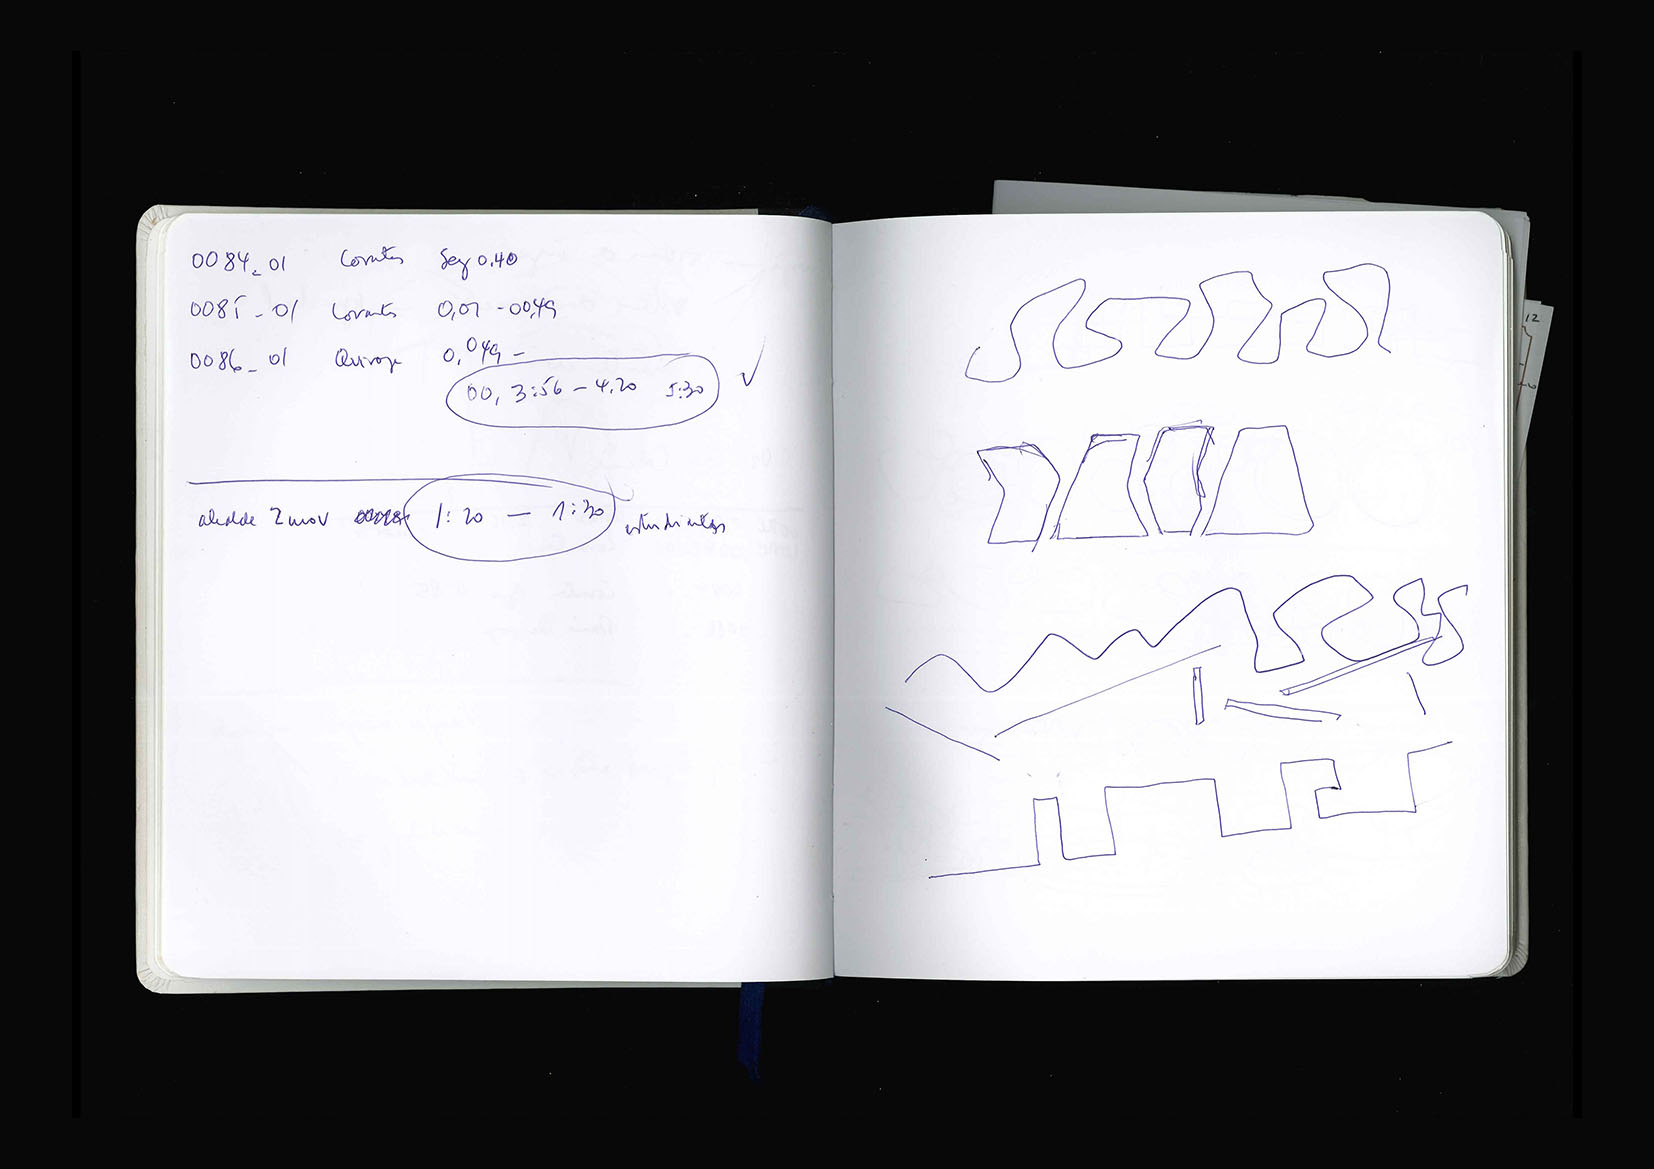 0084_01 Seg 0.40
0085_01 0,01 - 00,49
0086_01 Quiroga 0,049 -
00, 3:56 - 4,20 5:30
alcalde 2 mov 1:20 — 1:30 estudiantes
12